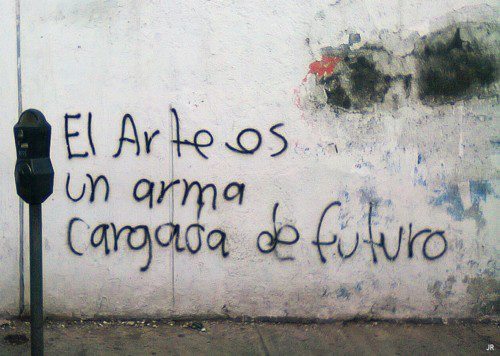 El Arte es
un arma
cargada de futuro
JR